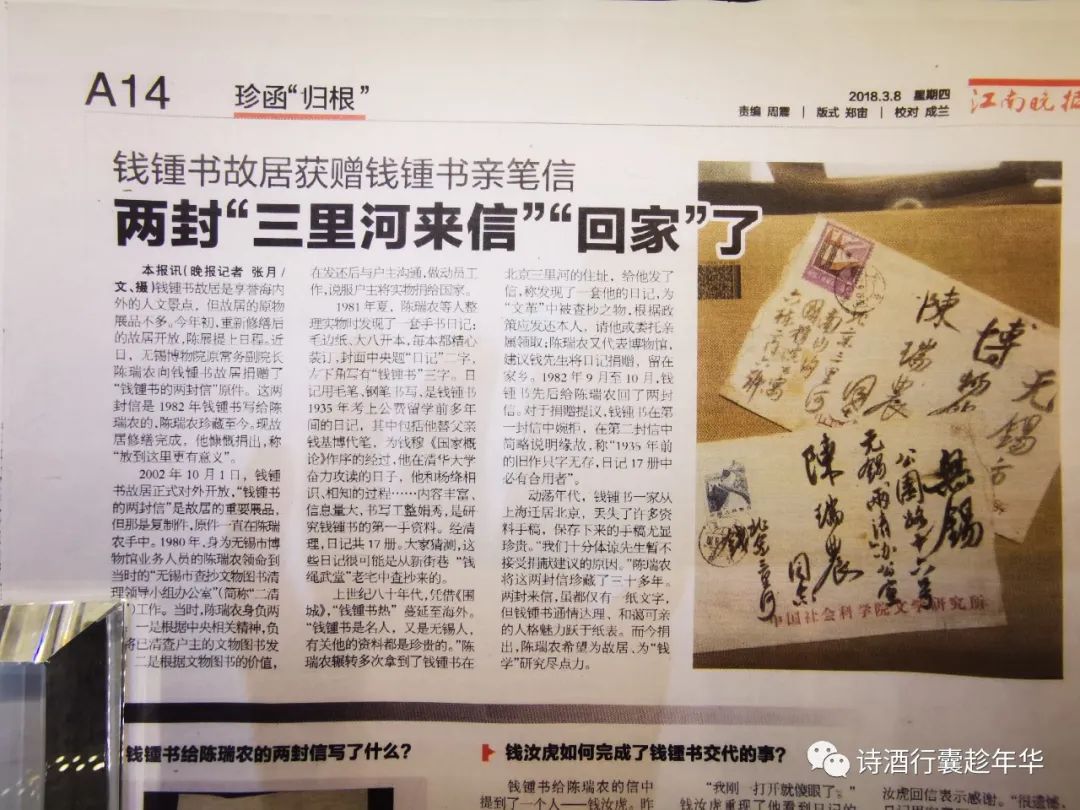 A14
珍函“归根”
2018.3.8 星期四
责编 周震 | 版式 郑宙 | 校对 成兰
江南晚报
钱锺书故居获赠钱锺书亲笔信
两封“三里河来信”“回家”了
本报讯(晚报记者 张月/
文、摄)钱锺书故居是享誉海内
外的人文景点，但故居的原物
展品不多。今年初，重新修缮后
的故居开放，陈展提上日程。近
日，无锡博物院原常务副院长
陈瑞农向钱锺书故居捐赠了
“钱锺书的两封信”原件。这两
封信是1982年钱锺书写给陈
瑞农的，陈瑞农珍藏至今。现故
居修缮完成，他慷慨捐出，称
“放到这里更有意义”。
2002年10月1日，钱锺
书故居正式对外开放，“钱锺书
的两封信”是故居的重要展品，
但那是复制件，原件一直在陈瑞
农手中。1980年，身为无锡市博
物馆业务人员的陈瑞农领命到
当时的“无锡市查抄文物图书清
理领导小组办公室”(简称“二清
)工作。当时，陈瑞农身负两
一是根据中央相关精神，负
将已清查户主的文物图书发
二是根据文物图书的价值，
在发还后与户主沟通，做动员工
作，说服户主将实物捐给国家。
1981年夏，陈瑞农等人整
理实物时发现了一套手书日记；
毛边纸、大八开本，每本都精心
装订，封面中央题“日记”二字，
左下角写有“钱锺书”三字。日
记用毛笔、钢笔书写，是钱锺书
1935年考上公费留学前多年
间的日记，其中包括他替父亲
钱基博代笔，为钱穆《国家概
论》作序的经过，他在清华大学
奋力攻读的日子，他和杨绛相
识、相知的过程……内容丰富、
信息量大，书写工整娟秀，是研
究钱锺书的第一手资料。经清
理，日记共17册。大家猜测，这
些日记很可能是从新街巷“钱
绳武堂”老宅中查抄来的。
上世纪八十年代，凭借《围
城》，“钱锺书热”蔓延至海外。
“钱锺书是名人，又是无锡人，
有关他的资料都是珍贵的。”陈
瑞农辗转多次拿到了钱锺书在
北京三里河的住址，给他发了
信，称发现了一套他的日记，为
“文革”中被查抄之物，根据政
策应发还本人，请他或委托亲
属领取；陈瑞农又代表博物馆，
建议钱先生将日记捐赠，留在
家乡。1982年9月至10月，钱
锺书先后给陈瑞农回了两封
信。对于捐赠提议，钱锺书在第
一封信中婉拒，在第二封信中
简略说明缘故，称“1935年前
的旧作只字无存，日记17册中
必有合用者”。
动荡年代，钱锺书一家从
上海迁居北京，丢失了许多资
料手稿，保存下来的手稿尤显
珍贵。“我们十分体谅先生暂不
接受捐献建议的原因。”陈瑞农
将这两封信珍藏了三十多年。
两封来信，虽都仅有一纸文字，
但钱锺书通情达理、和蔼可亲
的人格魅力跃于纸表。而今捐
出，陈瑞农希望为故居、为“钱
学”研究尽点力。
无锡市
博物馆
陳瑞農 同志
北京三里河
南沙沟
無錫
公園路十六号
无錫市两清办公室
陳瑞農 同志
北京三里河
钱
中国社会科学院文学研究所
钱锺书给陈瑞农的两封信写了什么？
钱汝虎如何完成了钱锺书交代的事？
钱锺书给陈瑞农的信中
提到了一个人——钱汝虎。昨
“我刚一打开就傻眼了。”钱
汝虎重现了他看到日记的
汝虎回信表示感谢。“很遗憾，
诗酒行囊趁年华